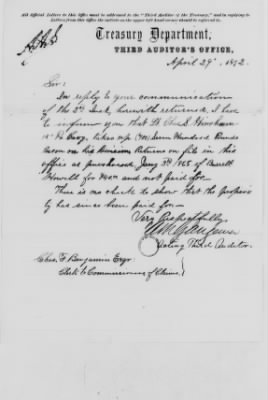 All Official Letters to this Office must be addressed to the "Third Auditor of the Treasury," and in replying to
Letters from this Office the initials on the upper left hand corner should be referred to.
Treasury Department,
THIRD AUDITOR'S OFFICE,
April 29" 1872
Sir:
In reply to your communication
of the 3d Inst, herewith returned, I have
to inform you that Lt Chas S. Hinsham
10" Pa Cavy, takes up (700) Seven Hundred Pounds
Bacon on his Provision Returns on file in this
office as purchased Jany 3d 1865 of
Howell for and not paid for
There is no check to show that the proper
ty has since been paid for
Very Respectfully
Acting Third Auditor
Chas. F. Benjamin Esqr
Clerk to Commissioners of Claims